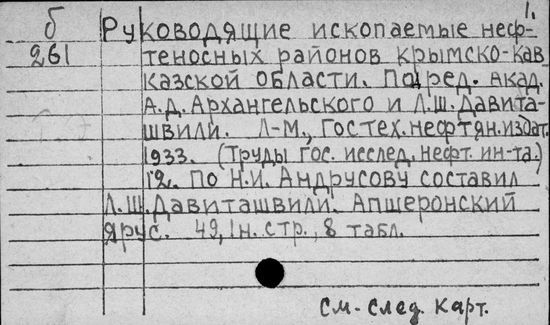 1.
б Руководящие ископаемые неф-
261 теносных районов Крымско-Кав
казской области. Под ред. акад.
А.Д. Архангельского и Л.Ш. Давита-
швили. Л-М., Гостех.нефтян.издат.
1933. (Труды Гос. исслед. нефт. ин-та.)
12. По Н.И. Андрусову составил
Л.Ш. Давиташвили. Апшеронский
ярус. 49, 1н. стр., 8 табл.
См. след. карт.